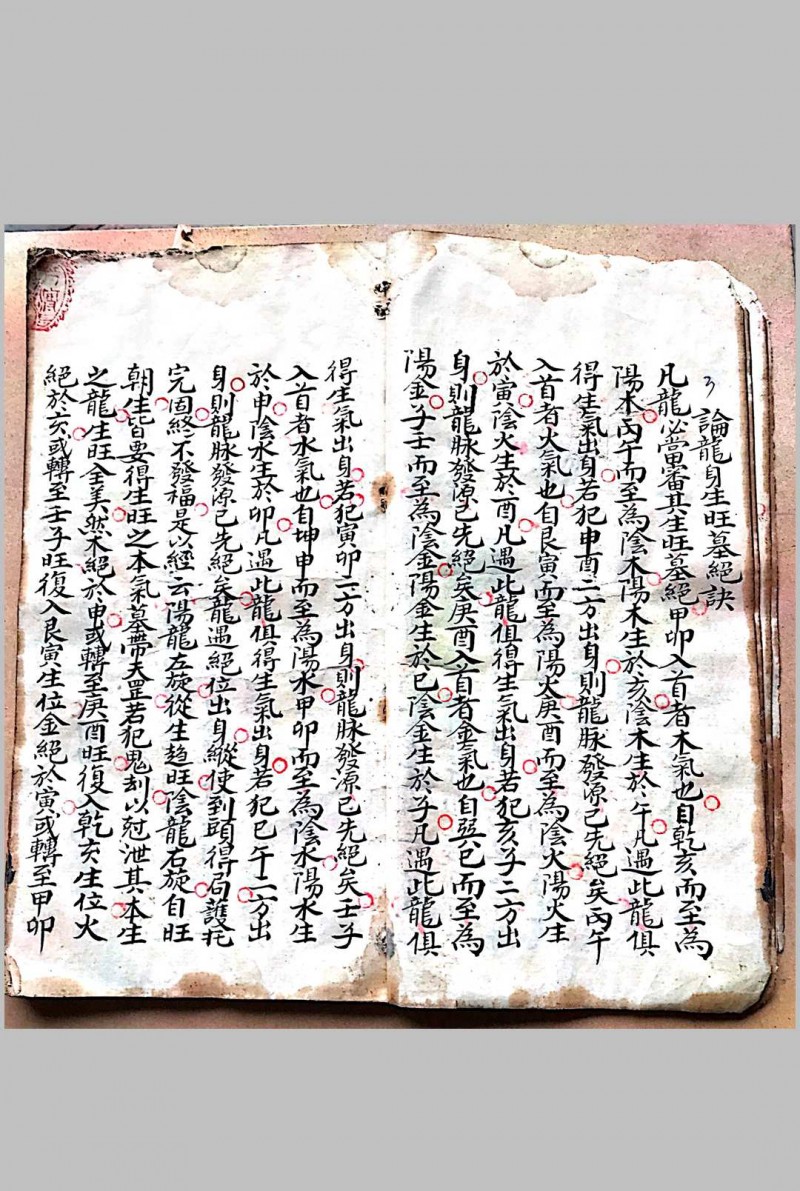 論龍身生旺墓絕訣
凡龍必當審其生旺墓絕甲卯入首者木氣也自乾亥而至為
陽木丙午而至為陰木陽木生於亥陰木生於午凡遇此龍俱
得生氣出身若犯申酉二方出身則龍脉發源已先絕矣丙午
入首者火氣也自艮寅而至為陽火庚酉而至為陰火陽火生
於寅陰火生於酉凡遇此龍俱得生氣出身若犯亥子二方出
身則龍脉發源已先絕矣庚酉入首者金氣也自巽巳而至為
陽金子壬而至為陰金陽金生於巳陰金生於子凡遇此龍俱
得生氣出身若犯寅卯二方出身則龍脉發源已先絕矣壬子
入首者水氣也自坤申而至為陽水甲卯而至為陰水陽水生
於申陰水生於卯凡遇此龍俱得生氣出身若犯巳午二方出
身則龍脉發源已先絕矣龍遇絕位出身縱使到頭得局護托
完固終不發福是以經云陽龍左旋從生趋旺陰龍右旋自旺
朝生皆要得生旺之本氣墓帶天罡若犯鬼刦以尅泄其本生
之龍生旺全美然木絕於申或轉至庚酉旺復入乾亥生位火
絕於亥或轉至壬子旺復入艮寅生位金絕於寅或轉至甲卯